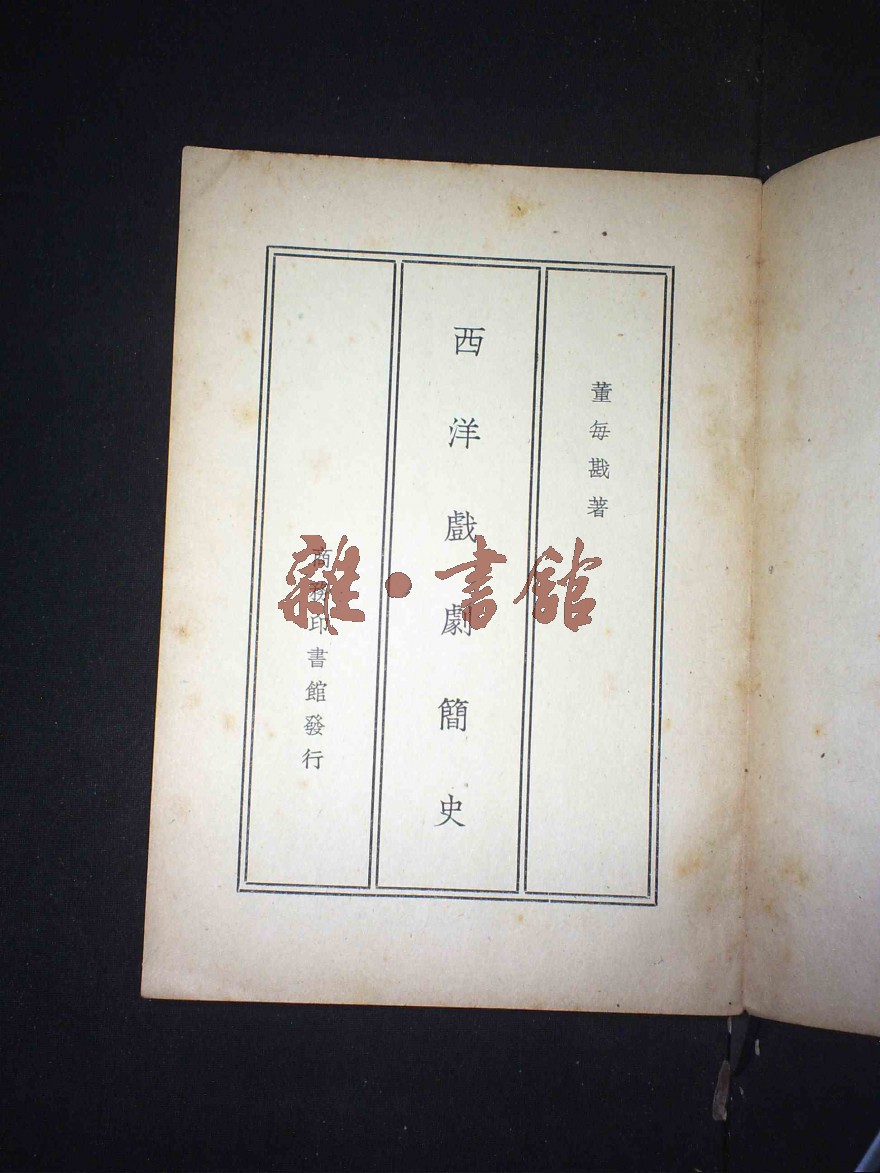 董每戡著
西洋戲劇簡史
商務印書館發行
雜·書館